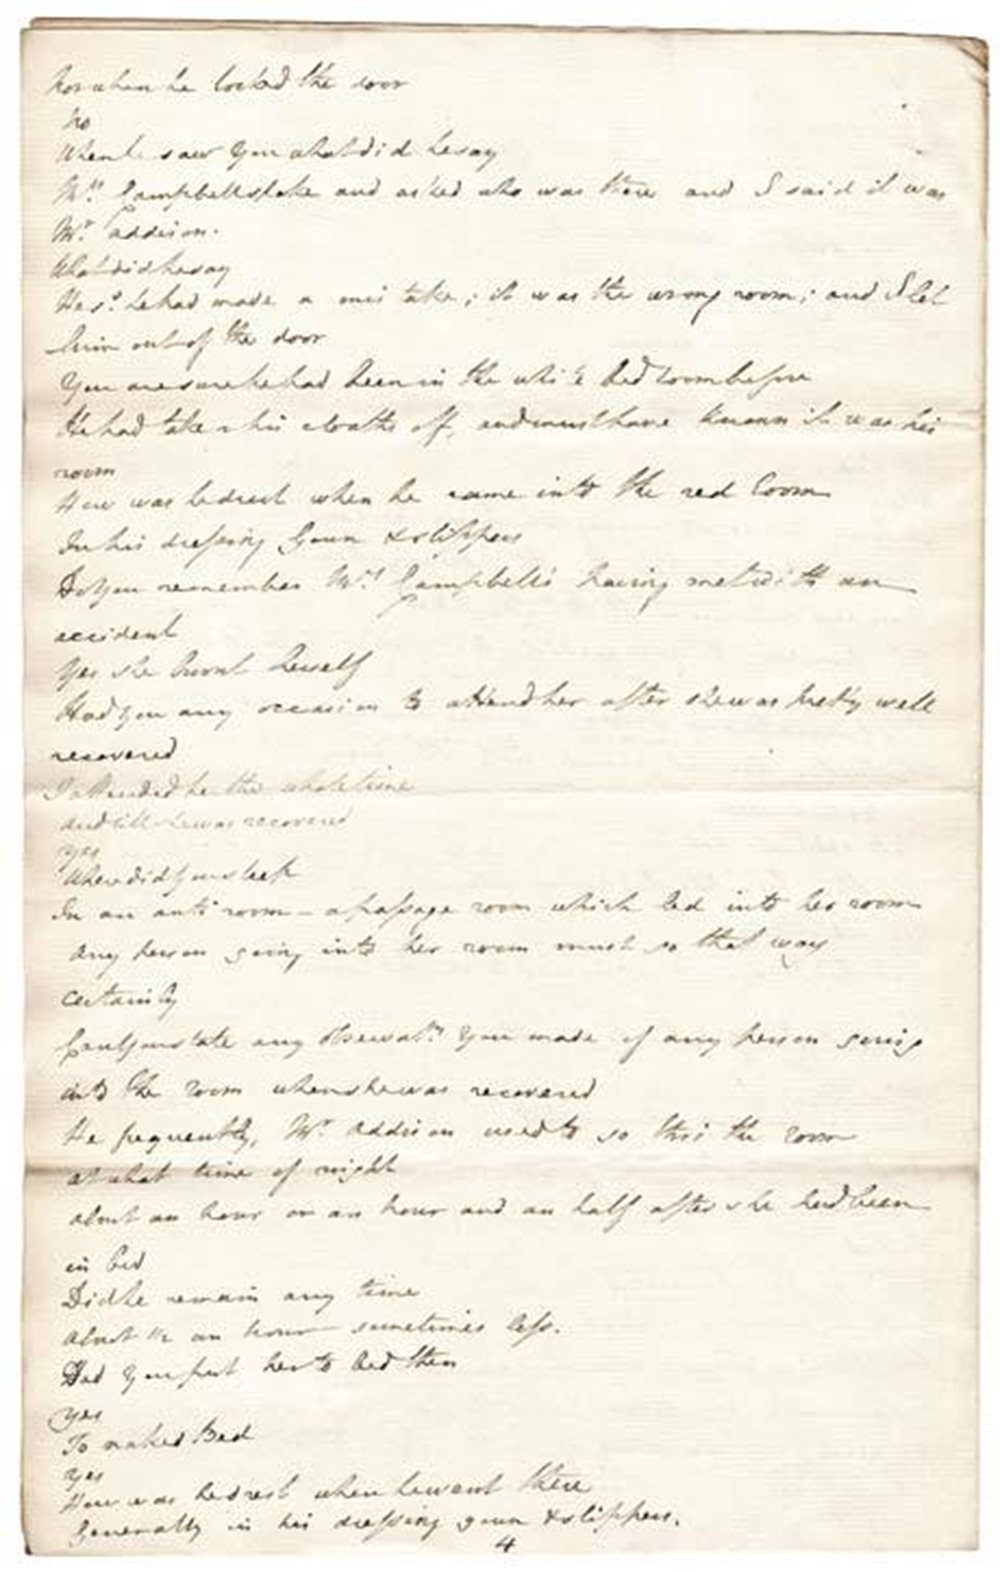 Nor when he locked the door
No
When he saw you what did he say
Mrs. Campbell spoke and asked who was there and I said it was
Mr. addison.
What did he say
He sd. he had made a mis take; it was the wrong room; and I let
him out of the door
You are sure he had been in the white bed room before
He had taken his cloaths off, and must have known it was his
room
How was he drest when he came into the red Room
In his dressing Gown & slippers
Do you remember Mrs. Campbell's having met with an
accident
Yes she burnt herself
Had you any occasion to attend her after she was pretty well
recovered
I attended her the whole time
and till she was recovered
yes
Where did you sleep
In an anti room - a passage room which led into her room
any person going into her room must go that way
certainly
Can you state any observatn. you made of any person going
into the room when she was recovered
He frequently, Mr. addison used to go thro the room
at what time of night
about an hour or an hour and an half after she had been
in bed
Did he remain any time
about an hour sometimes less.
Had you put her to bed then
yes
To naked Bed
yes
How was he drest when he went there
Generally in his dressing gown & slippers.
4